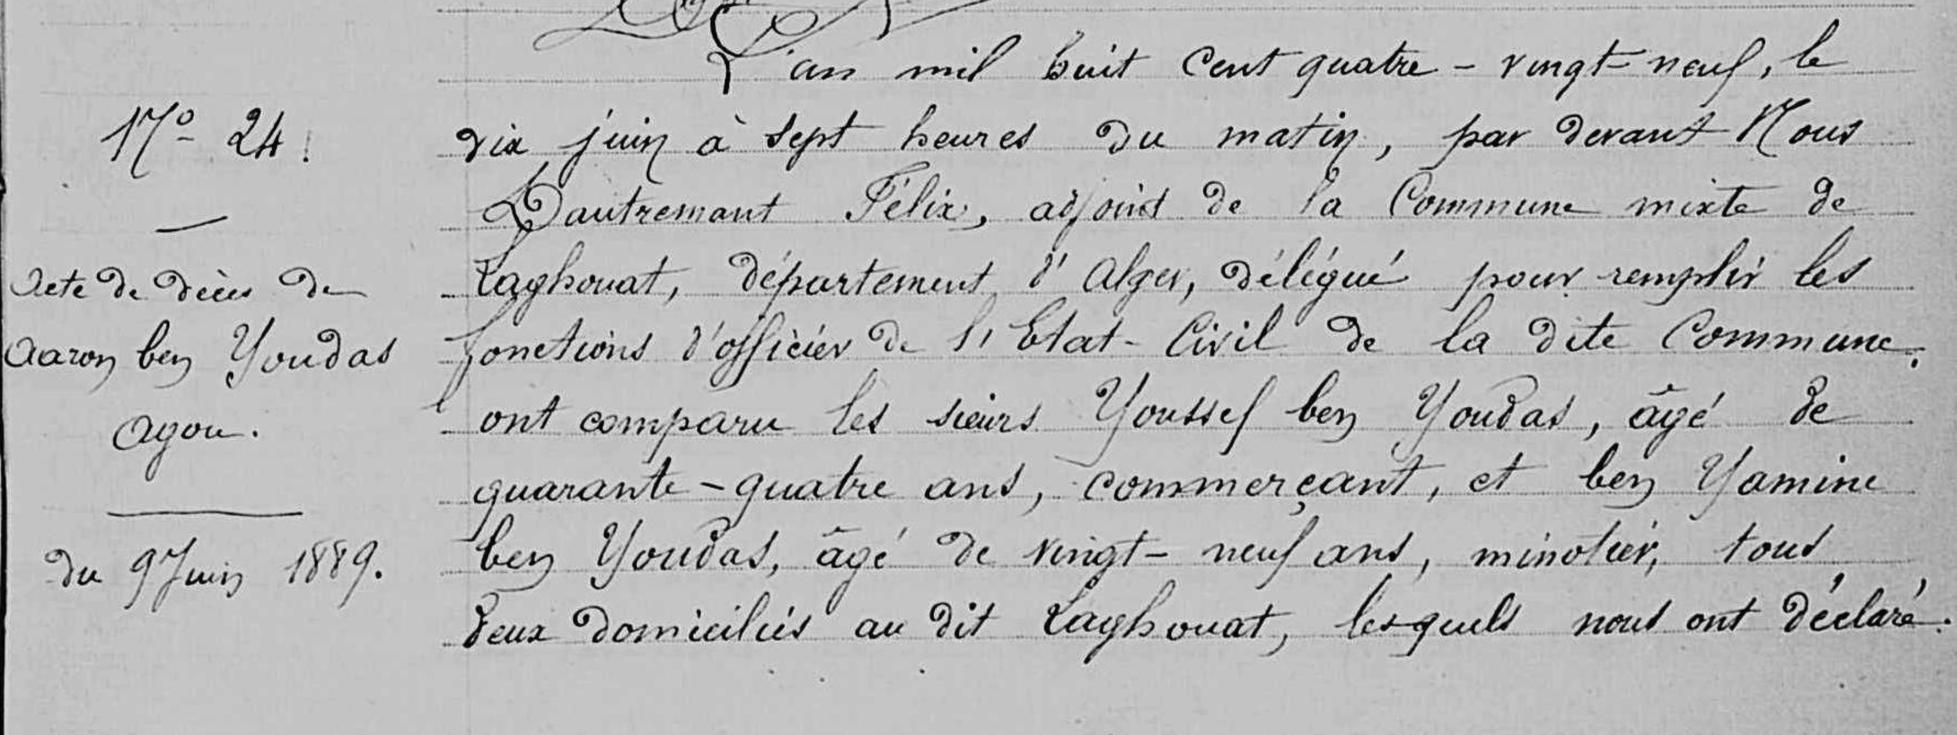 N° 24.
Acte de décès de
Aaron ben Youdas
Agou.
du 9 Juin 1889.
L'an mil huit cent quatre-vingt-neuf, le
dix juin à sept heures du matin, par devant Nous
Dautremant Félix, adjoint de la Commune mixte de
Laghouat, département d'Alger, délégué pour remplir les
fonctions d'officier de l'Etat-Civil de la dite Commune.
ont comparu les sieurs Youssef ben Youdas, âgé de
quarante-quatre ans, commerçant, et ben Yamine
ben Youdas, âgé de vingt-neuf ans, minotier, tous
deux domiciliés au dit Laghouat, lesquels nous ont déclaré.